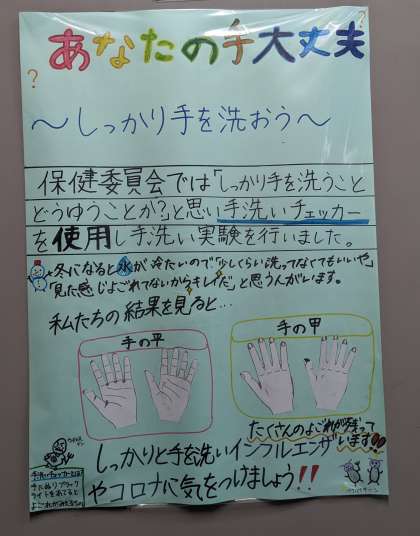 あなたの手大丈夫
?
?
～しっかり手を洗おう～
保健委員会では「しっかり手を洗うこと
どうゆうことか?」と思い手洗いチェッカー
を使用し手洗い実験を行いました。
冬になると水が冷たいので「少しくらい洗ってなくてもいいや」
「見た感じよごれてないからキレイだ」と思う人がいます。
私たちの結果を見ると…
手の平
手の甲
たくさんのよごれが残って
います!!
しっかりと手を洗いインフルエンザ
やコロナに気をつけましょう!!
手洗いチェッカーとは?
手にぬりブラック
ライトをあてると
よごれがみえるもの